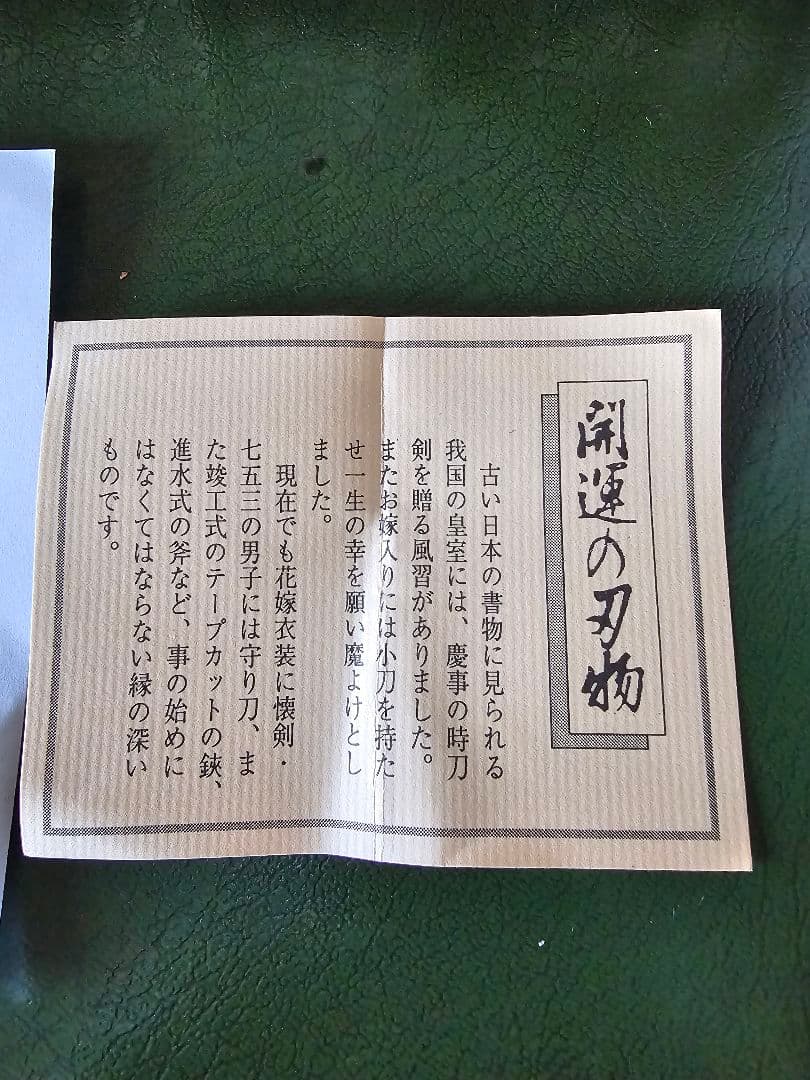 開運の刃物
古い日本の書物に見られる
我国の皇室には、慶事の時刀
剣を贈る風習がありました。
またお嫁入りには小刀を持た
せ一生の幸を願い魔よけとし
ました。
現在でも花嫁衣装に懐剣・
七五三の男子には守り刀、ま
た竣工式のテープカットの鋏、
進水式の斧など、事の始めに
はなくてはならない縁の深い
ものです。